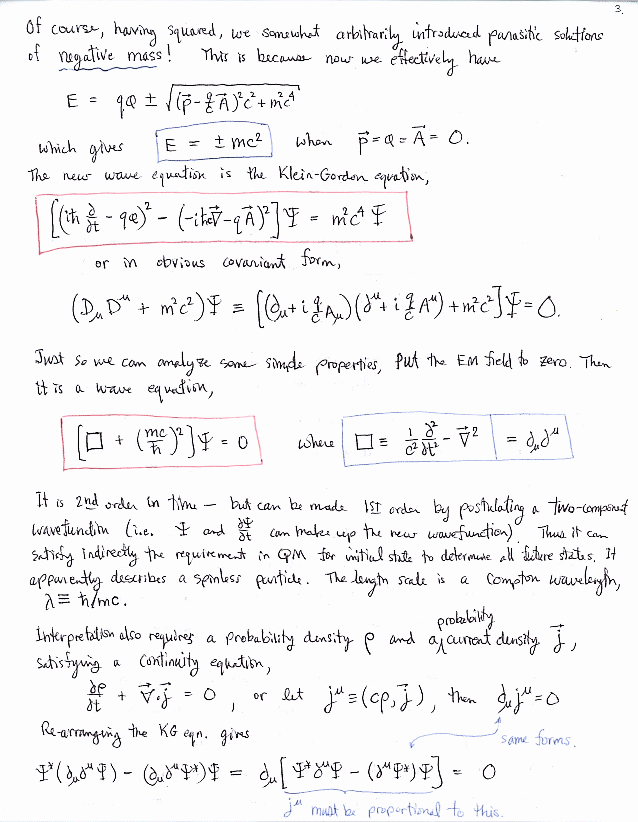 3.
Of course, having squared, we somewhat arbitrarily introduced parasitic solutions
of negative mass! This is because now we effectively have
E = qφ ± √((p⃗ - q/c A⃗)²c² + m²c⁴)
which gives E = ± mc² when p⃗ = φ = A⃗ = 0.
The new wave equation is the Klein-Gordon equation,
[(iħ ∂/∂t - qφ)² - (-iħc∇⃗ - qA⃗)²]Ψ = m²c⁴ Ψ
or in obvious covariant form,
(D_μ D^μ + m²c²)Ψ ≡ [(∂_μ + i q/c A_μ)(∂^μ + i q/c A^μ) + m²c²]Ψ = 0.
Just so we can analyze some simple properties, put the EM field to zero. Then
it is a wave equation,
[□ + (mc/ħ)²]Ψ = 0 where □ ≡ 1/c² ∂²/∂t² - ∇⃗² = ∂_μ∂^μ
It is 2nd order in time — but can be made 1st order by postulating a two-component
wavefunction (i.e. Ψ and ∂Ψ/∂t can make up the new wavefunction). Thus it can
satisfy indirectly the requirement in QM for initial state to determine all future states. It
apparently describes a spinless particle. The length scale is a Compton wavelength,
λ ≡ ħ/mc.
probability
Interpretation also requires a probability density ρ and a current density j⃗,
satisfying a continuity equation,
∂ρ/∂t + ∇⃗·j⃗ = 0, or let j^μ ≡ (cρ, j⃗), then ∂_μ j^μ = 0
Re-arranging the KG eqn. gives
same forms.
Ψ*(∂_μ∂^μ Ψ) - (∂_μ∂^μ Ψ*)Ψ = ∂_μ[Ψ*∂^μ Ψ - (∂^μ Ψ*)Ψ] = 0
j^μ must be proportional to this.